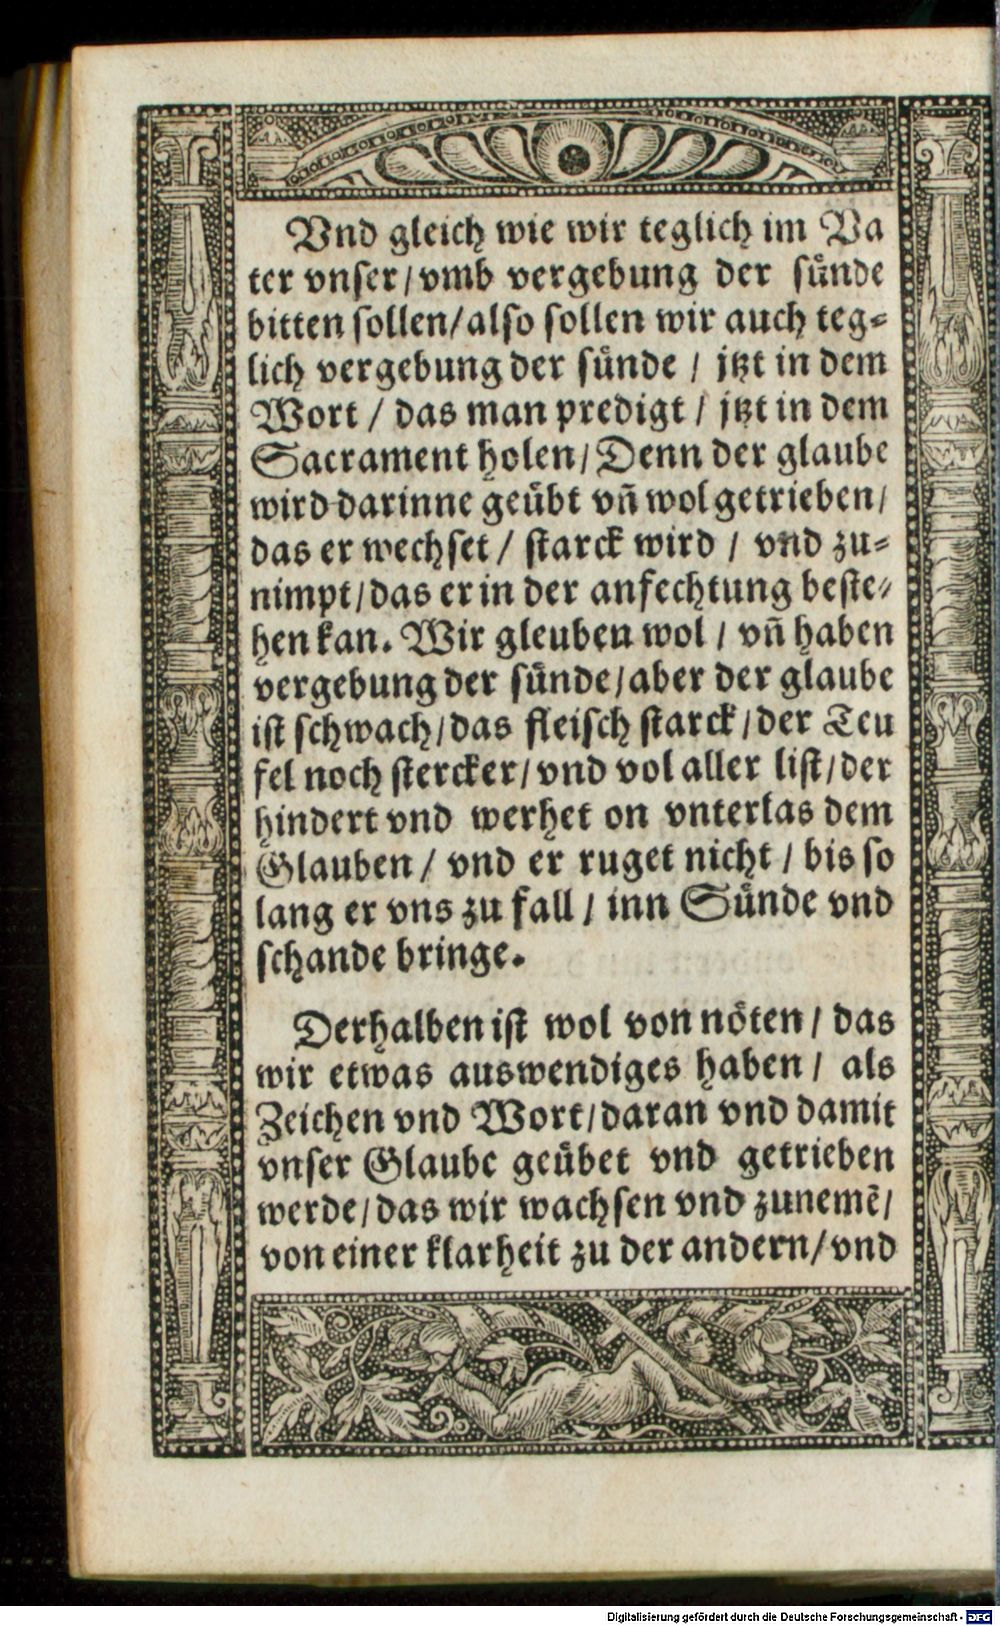 Vnd gleich wie wir teglich im Va
ter vnser / vmb vergebung der sünde
bitten sollen / also sollen wir auch teg-
lich vergebung der sünde / jtzt in dem
Wort / das man predigt / jtzt in dem
Sacrament holen / Denn der glaube
wird darinne geübt vñ wol getrieben /
das er wechset / starck wird / vnd zu-
nimpt / das er in der anfechtung beste-
hen kan. Wir gleuben wol / vñ haben
vergebung der sünde / aber der glaube
ist schwach / das fleisch starck / der Teu
fel noch stercker / vnd vol aller list / der
hindert vnd werhet on vnterlas dem
Glauben / vnd er ruget nicht / bis so
lang er vns zu fall / inn Sünde vnd
schande bringe.
Derhalben ist wol von nöten / das
wir etwas auswendiges haben / als
Zeichen vnd Wort / daran vnd damit
vnser Glaube geübet vnd getrieben
werde / das wir wachsen vnd zunemē /
von einer klarheit zu der andern / vnd
Digitalisierung gefördert durch die Deutsche Forschungsgemeinschaft - DFG